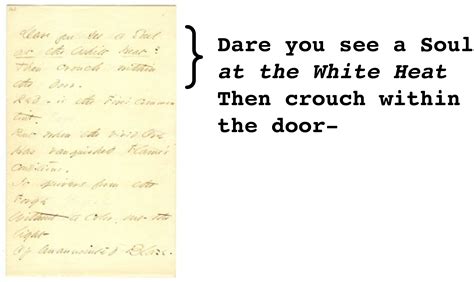 Dare you see a Soul
at the White Heat?
Then crouch within
the door.
Red - is the Fire's common
tint.
But when the vivid Ore
Has vanquished Flame's
conditions.
It quivers from the
Forge
Without a color, but the
light
Of unannointed Blaze.
Dare you see a Soul
at the White Heat
Then crouch within
the door–